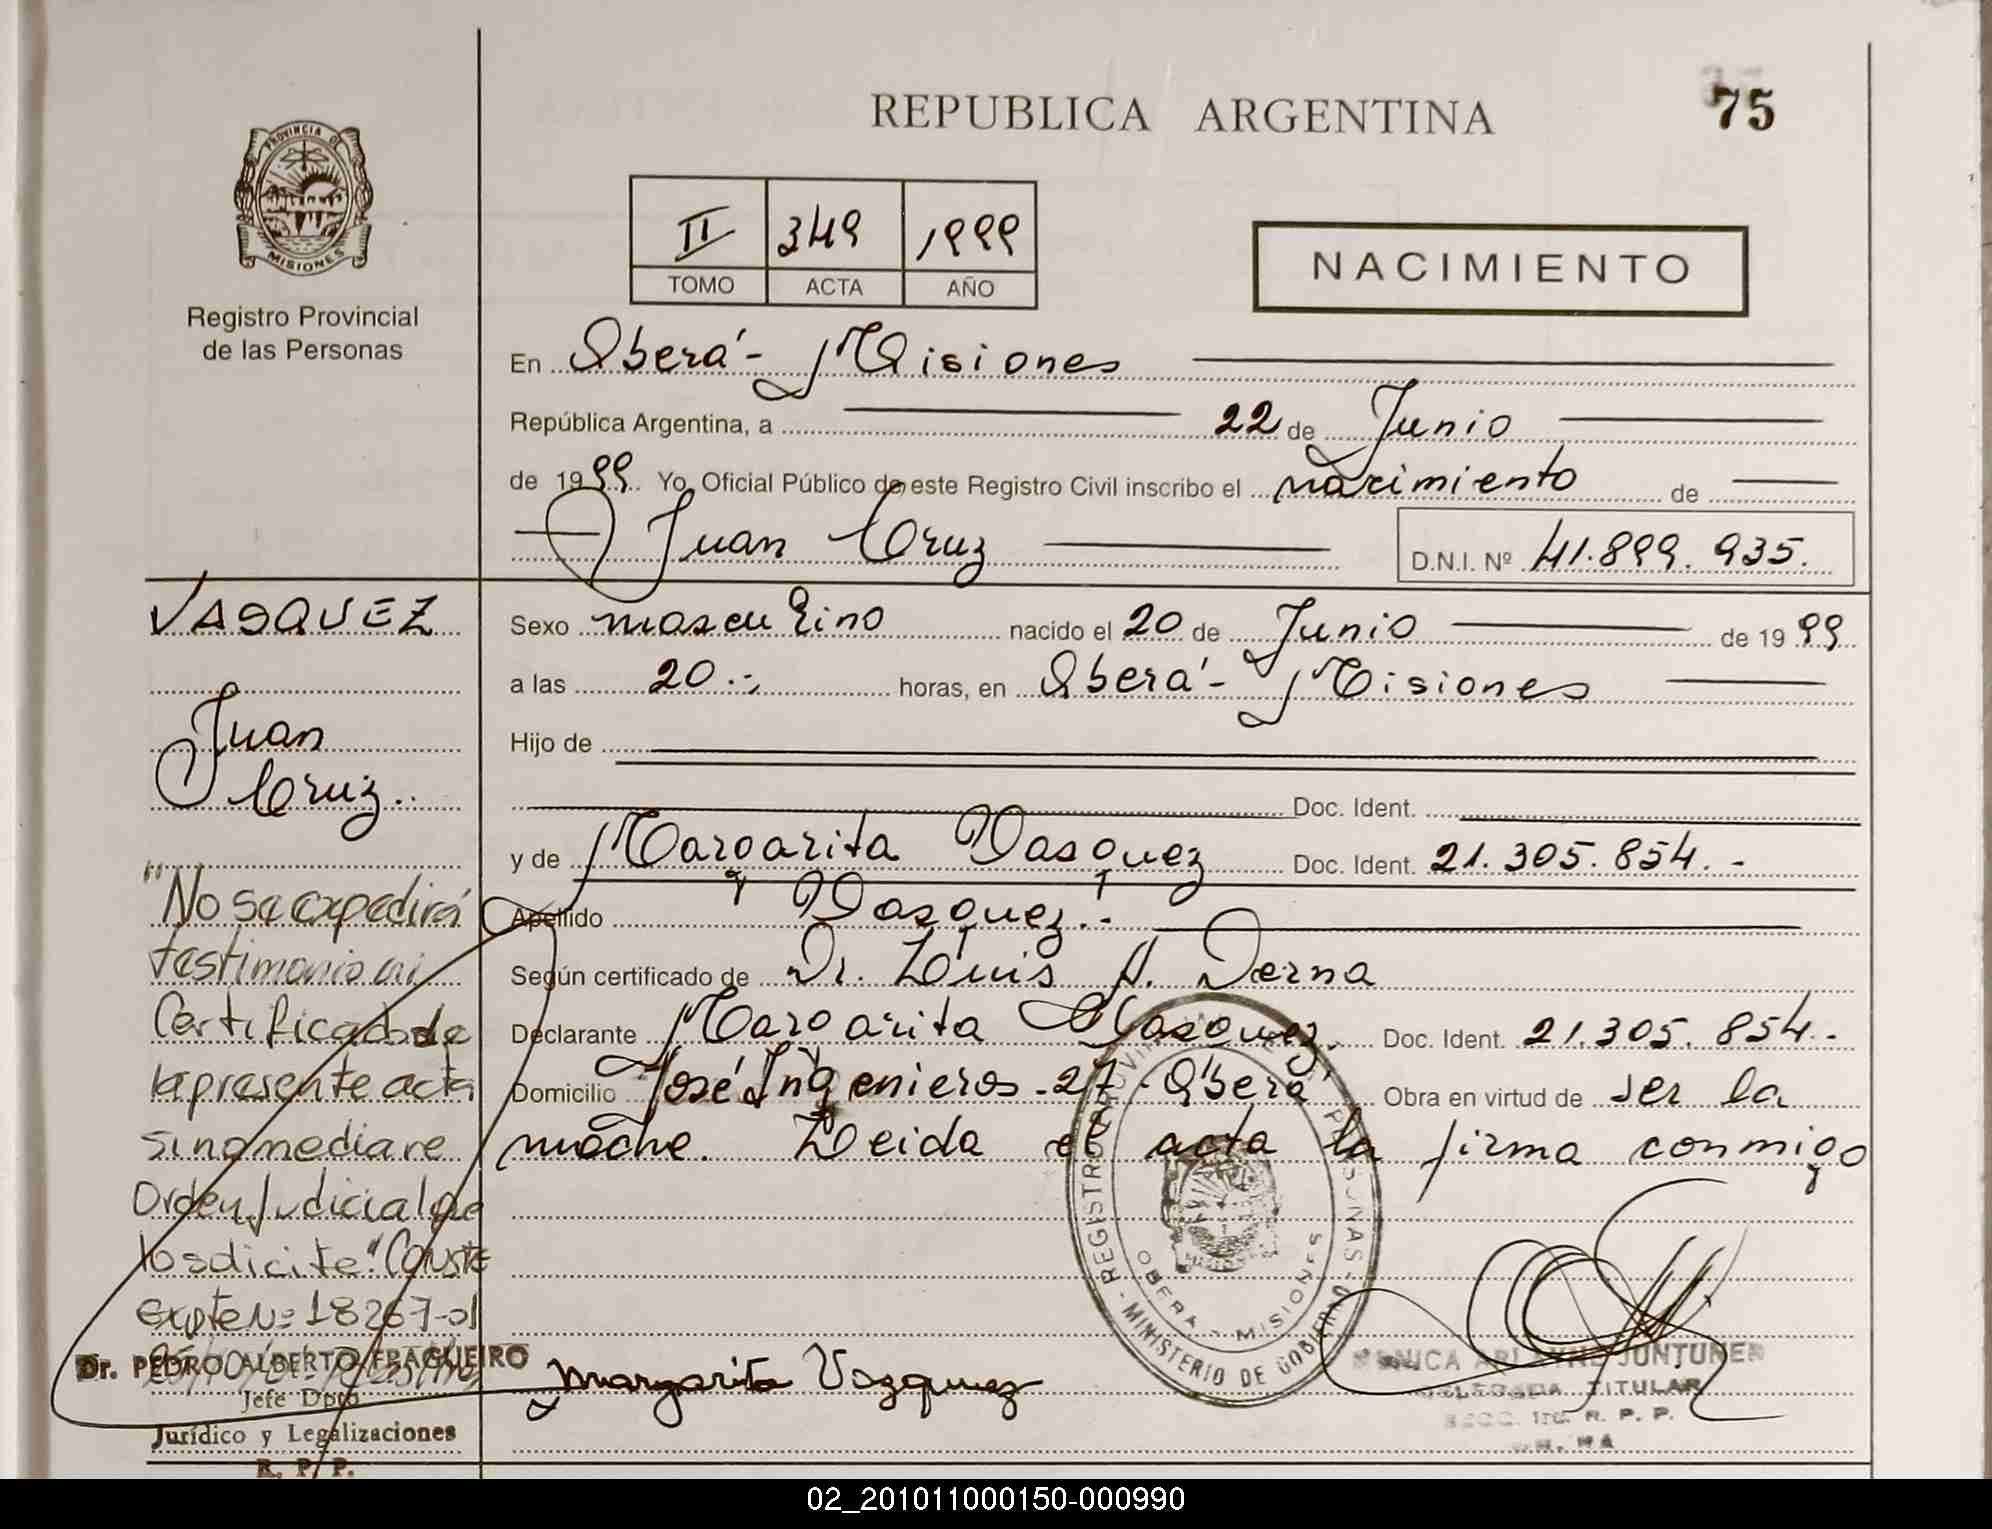 REPUBLICA ARGENTINA
75
PROVINCIA DE
MISIONES
Registro Provincial
de las Personas
II 349 1999
TOMO ACTA AÑO
NACIMIENTO
En Oberá - Misiones
República Argentina, a 22 de Junio
de 1999 Yo, Oficial Público de este Registro Civil inscribo el nacimiento de
Juan Cruz
D.N.I. Nº 41.899.935.
VASQUEZ
Juan
Cruz.
Sexo masculino nacido el 20 de Junio de 1999
a las 20 horas, en Oberá - Misiones
Hijo de
Doc. Ident.
y de Margarita Vasquez Doc. Ident. 21.305.854.-
Apellido Vasquez.-
Según certificado de Dr. Luis A. Derna
Declarante Margarita Vasquez. Doc. Ident. 21.305.854.-
Domicilio José Ingenieros - 27 - Oberá Obra en virtud de ser la
madre. Leida el acta la firma conmigo
"No se expedirá
testimonio ni
Certificado de
la presente acta
si no mediare
Orden Judicial que
lo solicite". Conste
Expte Nº 18267-01
Dr. PEDRO ALBERTO FRAGUEIRO
Jefe Dpto
Jurídico y Legalizaciones
R. P. P.
margarita Vazquez
REGISTRO PROVINCIAL DE LAS PERSONAS
MINISTERIO DE GOBIERNO
OBERA - MISIONES
MONICA JUNTUNEN
DELEGADA TITULAR
R. P. P.
02_201011000150-000990